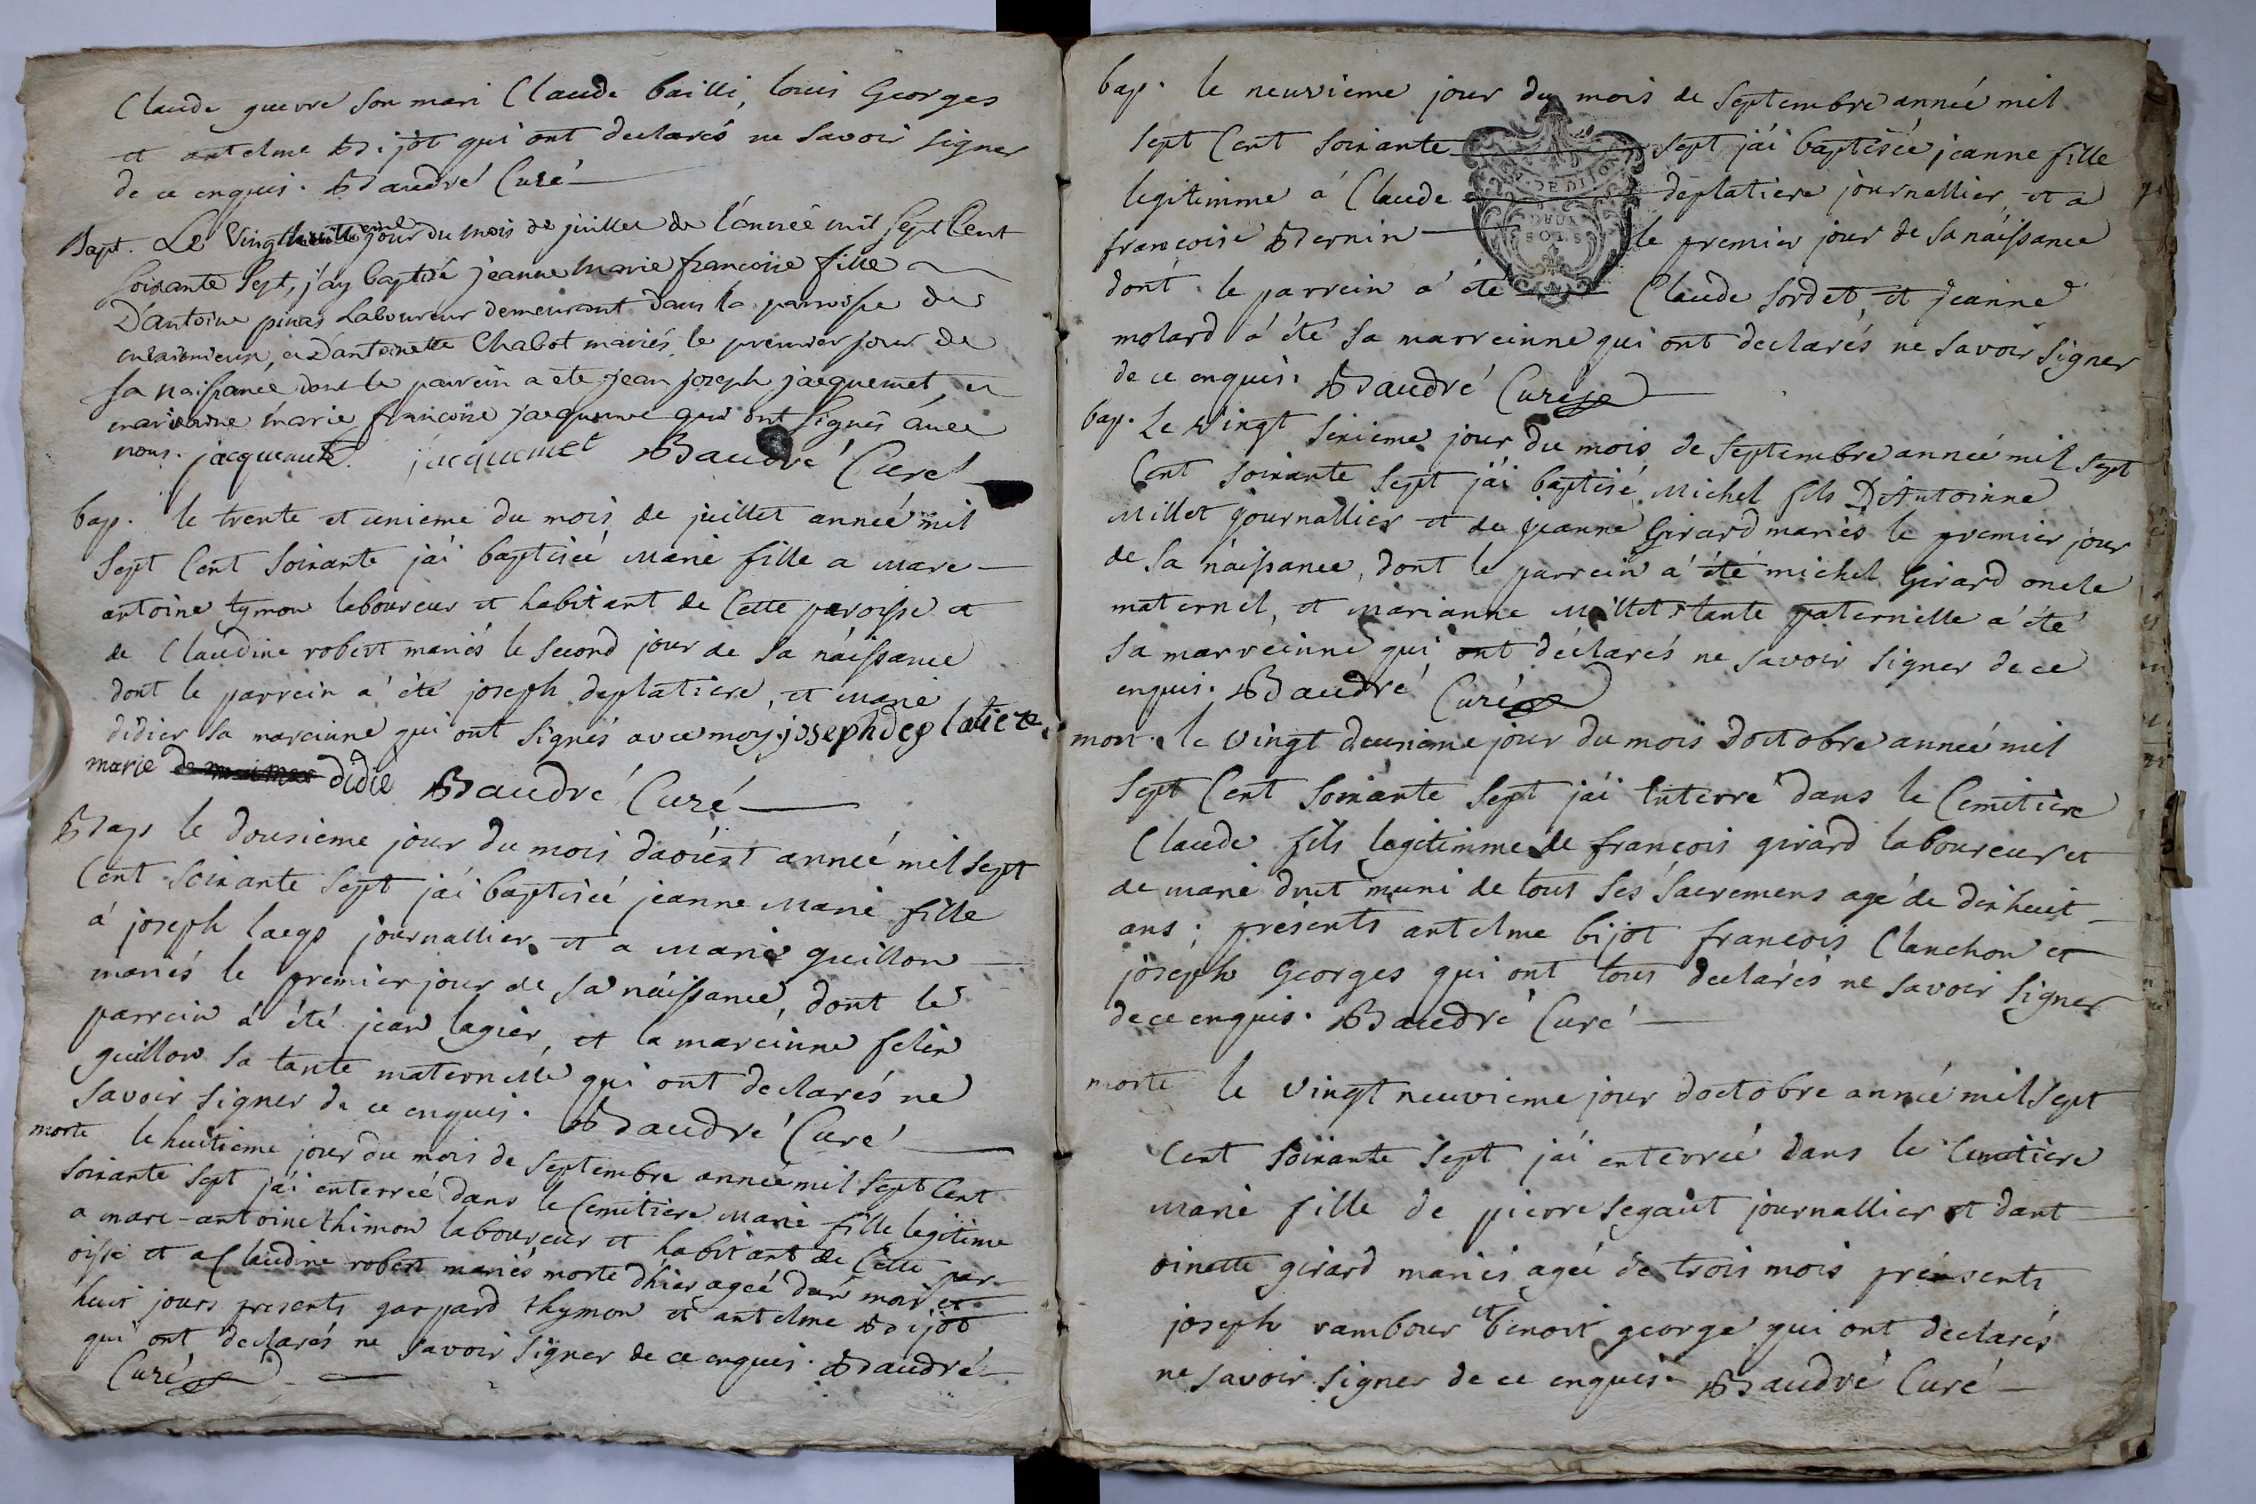 Claude guevre son mari Claude bailli, louis Georges
et antelme Bijot qui ont declarés ne savoir signer
de ce enquis. Baudré Curé
Bapt. Le Vingt jour du mois de juillet de l'année mil sept Cent
soixante sept, j'ay baptisé jeanne marie francoise fille
D'antoine pinas Laboureur demeurant dans la parroisse de
et D'antoinette Chabot mariés le premier jour de
sa naissance dont le parrein a ete jean joseph jacquemet et
marraine marie francoise jacquemet qui ont signés avec
nous. jacquemet jacquemet Baudré Curé
bap. le trente et unieme du mois de juillet année mil
sept Cent soixante j'ái baptiséé marie fille a marc
antoine tymon laboureur et habitant de Cette paroisse et
de Claudine robert mariés le second jour de sa náissance
dont le parrein a été joseph deplatiere, et marie
didier sa mareinne qui ont signés avec moy. joseph deplatiere
marie didié Baudré Curé
Bap le dousieme jour du mois daóust année mil sept
Cent soixante sept j'ái baptiséé jeanne marie fille
á joseph journallier et a marie guillon
mariés le premier jour de sa náissance, dont le
parrein á été jean lagier, et la mareinne
guillon sa tante maternelle qui ont declarés ne
savoir signer de ce enquis. Baudré Curé
morte le huitieme jour du mois de septembre année mil sept Cent
soixante sept j'ái enterréé dans le Cemitiere marie fille legitime
a marc-antoine thimon laboureur et habitant de Cette par-
oisse et a Claudine robert mariés morte d'hier ageé d'un mois et
huit jours presents gaspard thymon et antelme Bijot
qui ont declarés ne savoir signer de ce enquis. Baudré
Curé
bap. le neuvieme jour du mois de septembre année mil
sept Cent soixante sept j'ái baptiséé jeanne fille
legitimme á Claude deplatiere journallier et a
françoise Bernin le premier jour de sa náissance
dont le parrein á été Claude sordet, et jeanne
molard á été sa marreinne qui ont declarés ne savoir signer
de ce enquis. Baudré Curé
bap. Le Vingt sixieme jour du mois de septembre année mil sept
Cent soixante sept j'ái baptisé Michel fils D'Antoinne
Millet journallier et de jeanne Girard mariés le premier jour
de sa náissance, dont le parrein á été michel Girard oncle
maternel, et marianne Millet tante paternelle á été
sa marreinne qui ont déclarés ne savoir signer de ce
enquis. Baudré Curé
mort. le vingt deuxieme jour du mois d'octobre année mil
sept Cent soixante sept j'ái Enterré dans le Cemitiere
Claude fils legitimme de françois girard laboureur et
de marie muni de tous ses sacremens agé de dix huit
ans; presents antelme bijot francois Clanchon et
joseph Georges qui ont tous declarés ne savoir signer
de ce enquis. Baudré Curé
morte le vingt neuvieme jour d'octobre année mil sept
Cent soixante sept j'ái enterréé dans le Cemitiere
marie fille de pierre segaut journallier et dant
oinette girard mariés ageé de trois mois présents
joseph rambour et benoit george qui ont declarés
ne savoir signer de ce enquis. Baudré Curé
DE DIJON
DEUX
SOLS